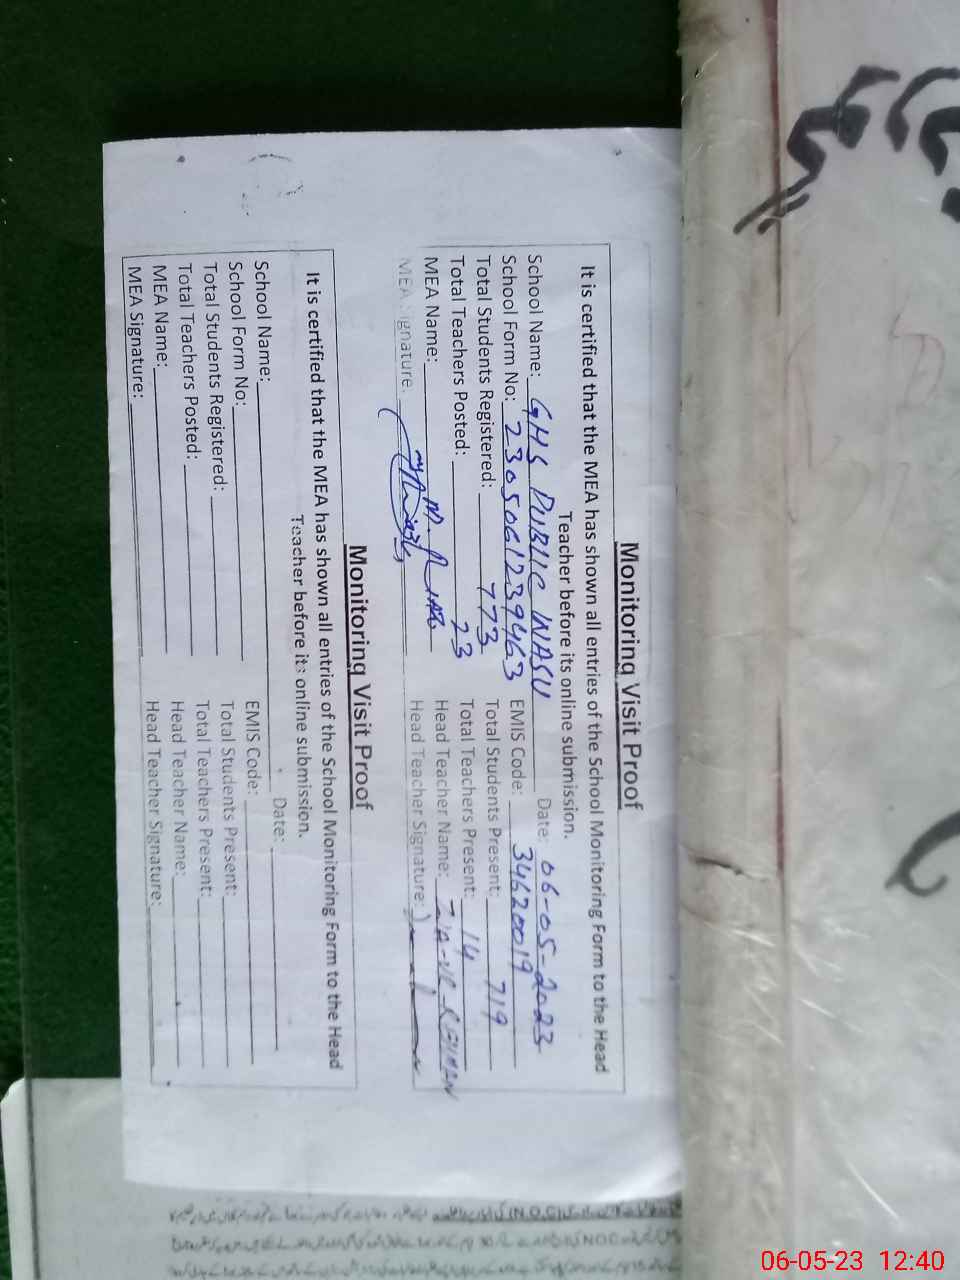 Monitoring Visit Proof
It is certified that the MEA has shown all entries of the School Monitoring Form to the Head
Teacher before its online submission.
School Name: GHS PUBLIC WASU Date: 06-05-2023
School Form No: 2305061239463 EMIS Code: 34620019
Total Students Registered: 773 Total Students Present: 719
Total Teachers Posted: 23 Total Teachers Present: 14
MEA Name: M. Riaz Head Teacher Name: ZIA-UR-REHMAN
MEA Signature: Head Teacher Signature:
Monitoring Visit Proof
It is certified that the MEA has shown all entries of the School Monitoring Form to the Head
Teacher before its online submission.
Date:
School Name:
School Form No: EMIS Code:
Total Students Registered: Total Students Present:
Total Teachers Posted: Total Teachers Present:
MEA Name: Head Teacher Name:
MEA Signature: Head Teacher Signature:
06-05-23 12:40